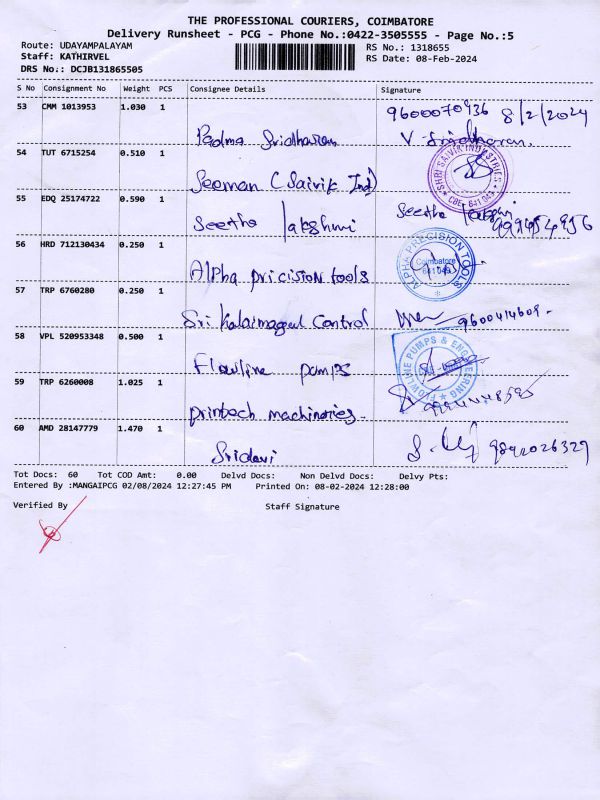 THE PROFESSIONAL COURIERS, COIMBATORE
Delivery Runsheet - PCG - Phone No.:0422-3505555 - Page No.:5
Route: UDAYAMPALAYAM
RS No.: 1318655
Staff: KATHIRVEL
RS Date: 08-Feb-2024
DRS No.: DCJB131865505
S No Consignment No Weight PCS Consignee Details Signature
53 CMM 1013953 1.030 1 9600070936 8/2/2024
Padma Sridharan V. Sridharan.
54 TUT 6715254 0.510 1
Seeman (Saivik Ind) SHRI SAIVIK INDUSTRIES CBE 641 049
55 EDQ 25174722 0.590 1
Seetha lakshmi Seetha
56 HRD 712130434 0.250 1
Alpha pricision tools ALPHA PRECISION TOOLS Coimbatore 641 049
57 TRP 6760280 0.250 1
Sri Kalaimagal Control 9600414609-
58 VPL 520953348 0.500 1
Flowline pumps FLOWLINE PUMPS & ENGINEERING
59 TRP 6260008 1.025 1
printech machineries-
60 AMD 28147779 1.470 1
Sridevi 9892026329
Tot Docs: 60 Tot COD Amt: 0.00 Delvd Docs: Non Delvd Docs: Delvy Pts:
Entered By :MANGAIPCG 02/08/2024 12:27:45 PM Printed On: 08-02-2024 12:28:00
Verified By Staff Signature